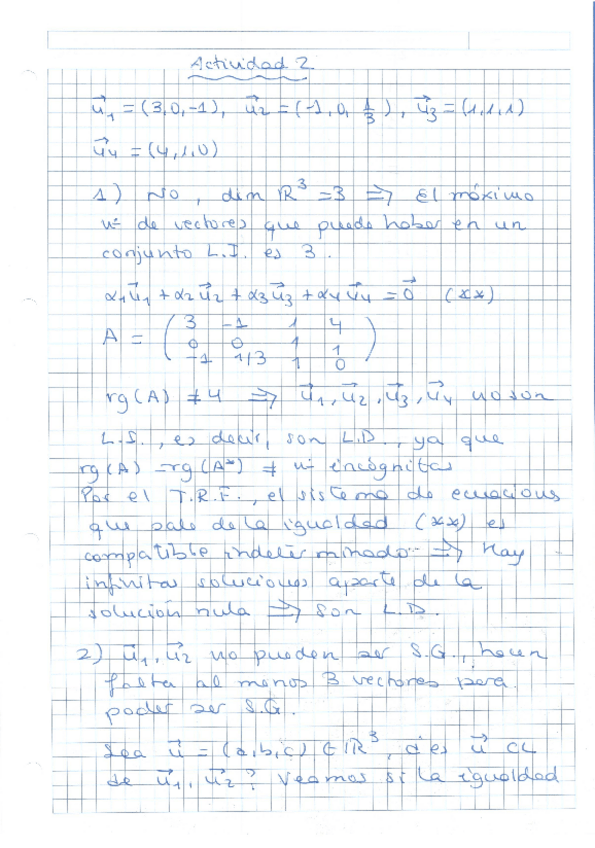 Actividad 2
u⃗1 = (3,0,-1), u⃗2 = (-1,0, 1/3), u⃗3 = (1,1,1)
u⃗4 = (4,1,0)
1) No, dim ℝ³ = 3 ⟹ El máximo
nº de vectores que puede haber en un
conjunto L.I. es 3.
α1u⃗1 + α2u⃗2 + α3u⃗3 + α4u⃗4 = 0⃗ (**)
A = ( 3 -1 1 4
0 0 1 1
-1 1/3 1 0 )
rg(A) ≠ 4 ⟹ u⃗1, u⃗2, u⃗3, u⃗4 no son
L.I., es decir, son L.D., ya que
rg(A) = rg(A*) ≠ nº incógnitas
Por el T.R.F., el sistema de ecuaciones
que sale de la igualdad (**) es
compatible indeterminado ⟹ Hay
infinitas soluciones aparte de la
solución nula ⟹ son L.D.
2) u⃗1, u⃗2 no pueden ser S.G., hacen
falta al menos 3 vectores para
poder ser S.G.
Sea u⃗ = (a,b,c) ∈ ℝ³, ¿es u⃗ CL
de u⃗1, u⃗2? Veamos si la igualdad